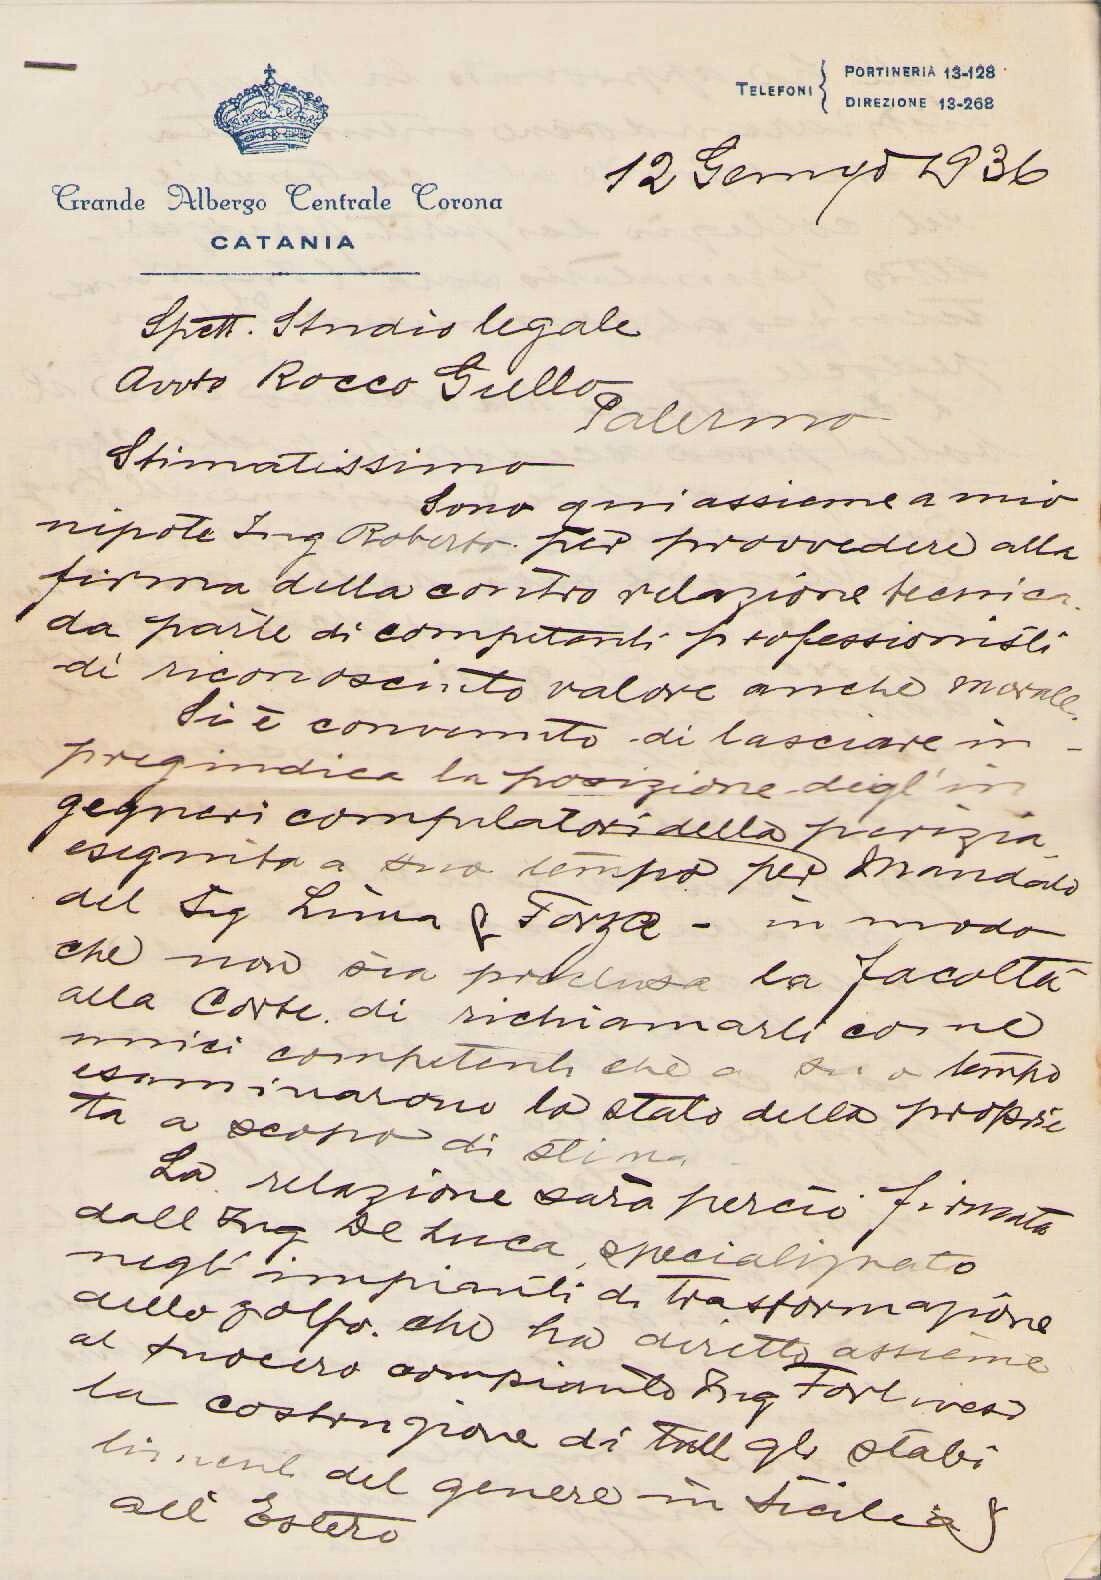 TELEFONI { PORTINERIA 13-128
DIREZIONE 13-268
Grande Albergo Centrale Corona
CATANIA
12 Gennajo 1936
Spett. Studio legale
Avvto Rocco Gullo
Palermo
Stimatissimo
Sono qui assieme a mio
nipote Ing Roberto per provvedere alla
firma della contro relazione tecnica
da parte di competenti professionisti
di riconosciuto valore anche morale.
Si è convenuto di lasciare in-
pregiudica la posizione degl'in
gegneri compilatori della perizia
eseguita a suo tempo per Mandato
del Sig Lima & Forze - in modo
che non sia preclusa la facoltà
alla Corte di richiamarli come
unici competenti che a suo tempo
esaminarono lo stato della proprie
ta a scopo di stima
La relazione sarà perciò firmata
dall Ing De Luca, specializzato
negl'impianti di trasformazione
dello zolfo. che ha diretto assieme
al suocero compianto Ing Forlivesi
la costruzione di tutti gli stabi
limenti del genere in Sicilia &
all'Estero